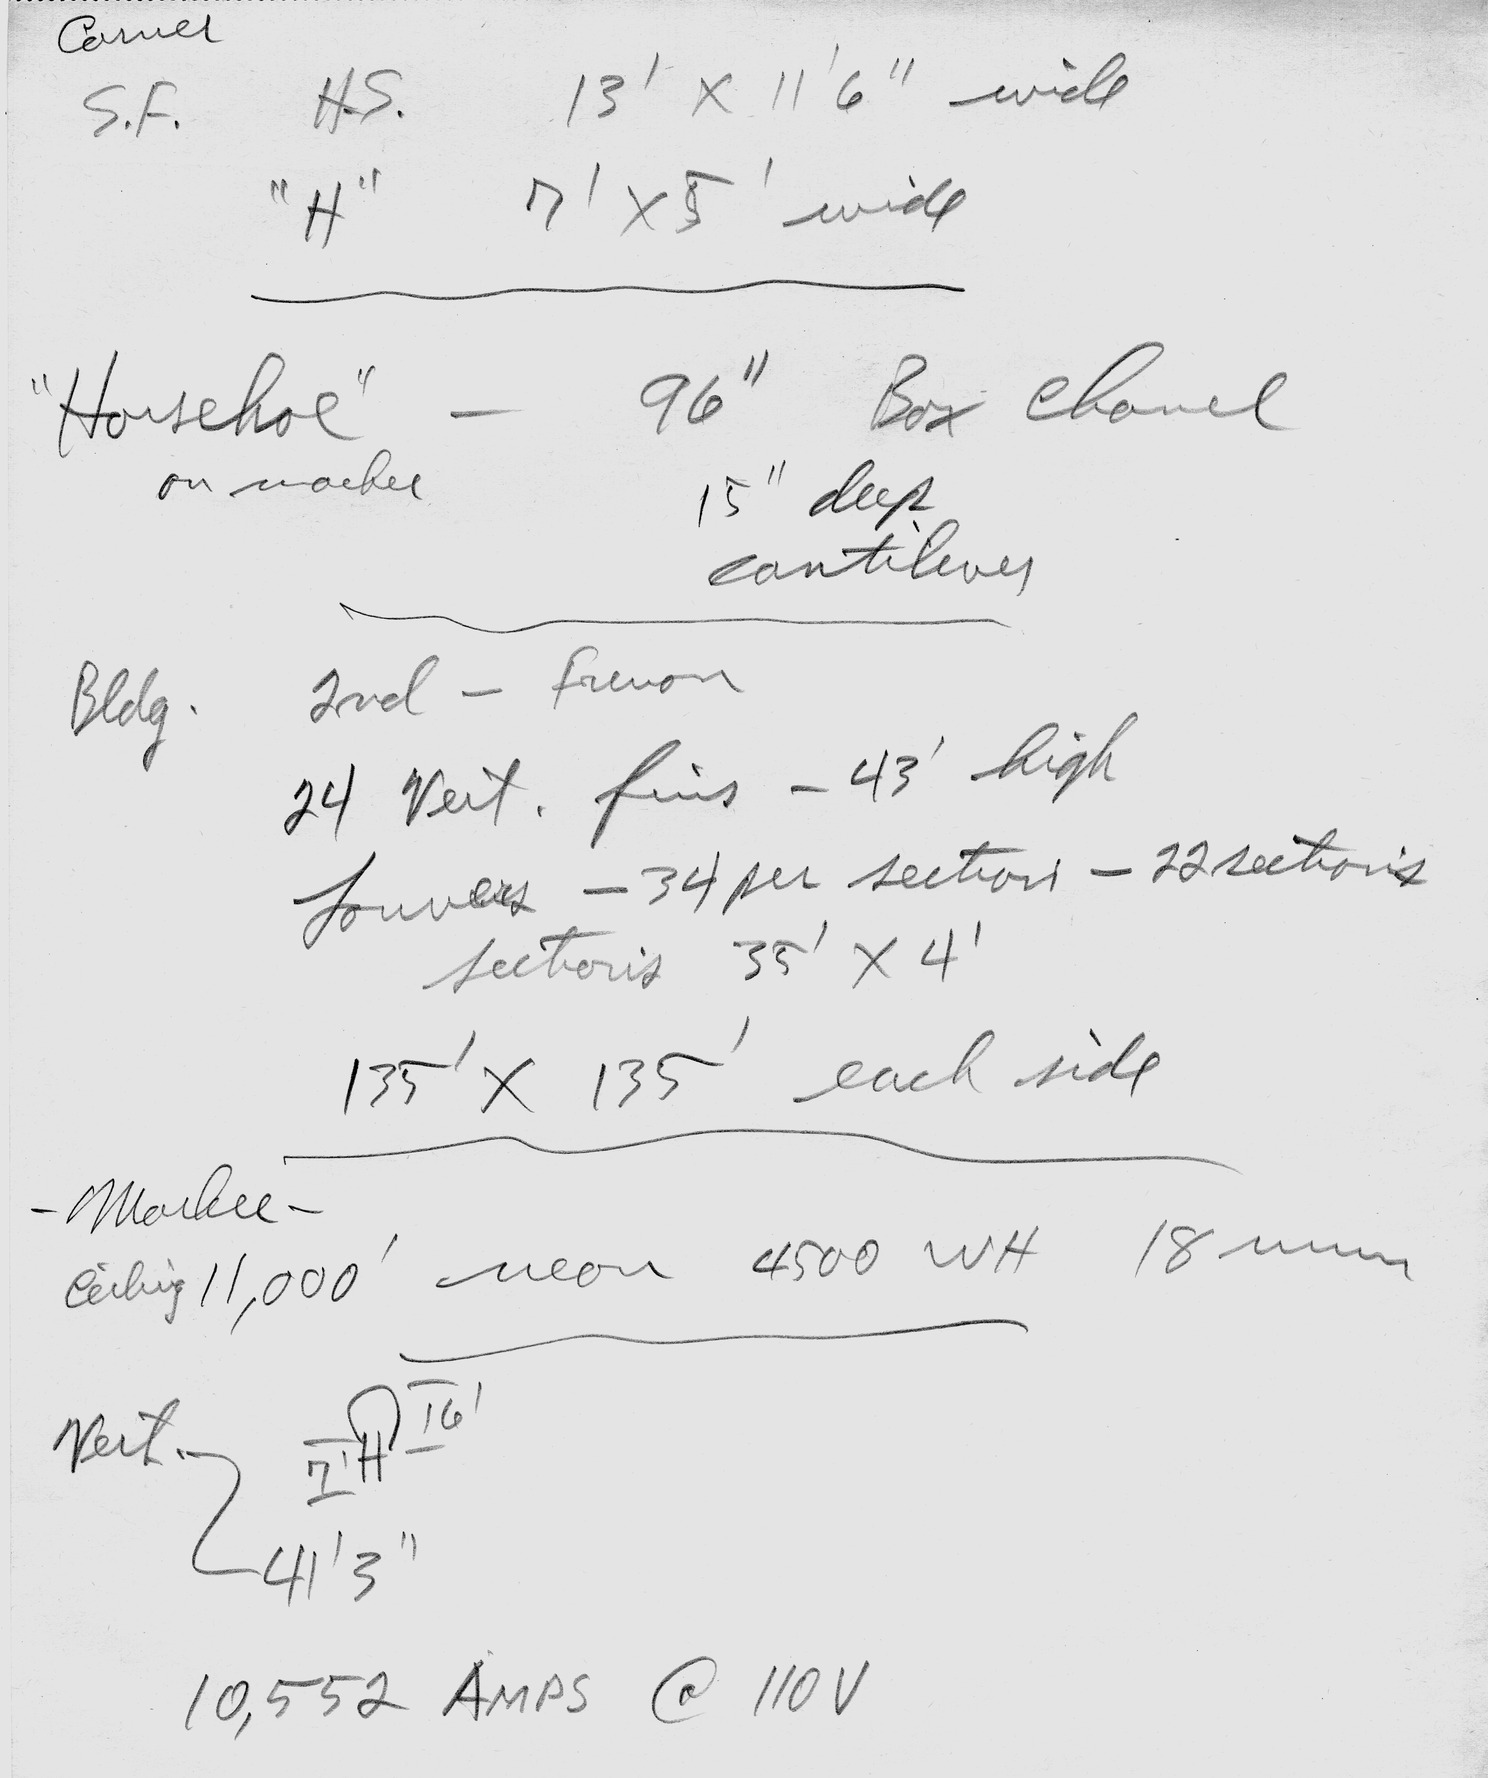 Corner
S.F. H.S. 13' X 11'6" wide
"H" 7' X 5' wide
"Horsehoe" — 96" Box Channel
on markee
15" deep
cantilever
Bldg. 2nd — Fremon
24 Vert. fins — 43' high
Louvers — 34 per section — 22 sections
sections 35' X 4'
135' X 135' each side
- Markee -
Ceiling 11,000' neon 4500 WH 18 mm
Vert. 16'
7' H
41'3"
10,552 AMPS @ 110V